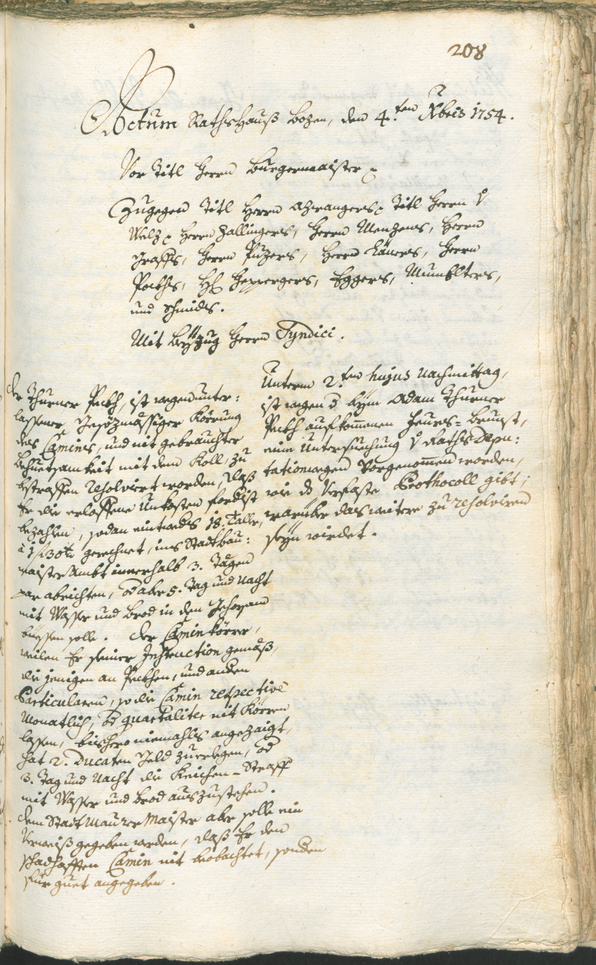 208
Actum Rathshauß Bozen, den 4.ten Xbris 1754.
Vor Titl Herrn Burgermaister
Zugegen Titl Herrn Titl Herrn V
Herrn Zallingers, Herrn Menzens, Herrn
Graffs, Herrn Herrn Herrn
Eggers,
und Schmids.
Mit Beyzug Herrn Syndici.
Unterm 2.ten hujus Nachmittag,
ist wegen d beym Adam Thurner
Pekh aufkommen Feurs-Brunst,
eine Untersuchung V Raths Depu:
tation wegen Vorgenommen worden,
wie ds Verfaste Prothocoll gibt;
warüber das weitere zu resolviren
seyn wirdet.
Der Thurner Pekh, ist wegen unter:
lassener, Körung
des Camins, und nit gebrauchter
Behuetsamkeit mit dem Koll, zu
bestraffen resolviert worden, daß
Er die erloffene Unkosten fordist
bezahlen, sodan eintweders 18. Taller,
à 1 f 30 x gerechnet, ins Stadtbau:
maister Ambt innerhalb 3. Tägen
par abrichten, od aber 5. Tag und Nacht
mit Wasser und Brod in den
büessen solle. Der Caminkörrer,
weilen Er seiner Instruction gemäß,
die jenigen an Pekhen, und anden
Particularen, so die Camin respective
Monatlich, od quartaliter nit Körren
lassen, bishero niemahls angezaigt,
hat 2. Ducaten Geld zuerlegen, od
3. Tag und Nacht die Keichen-Straff
mit Wasser und Brod auszustehen.
dem Stadt Maurer Maister aber solle ein
Verweiß gegeben werden, daß Er den
schadhafften Camin nit beobachtet, sonden
für guet angegeben.